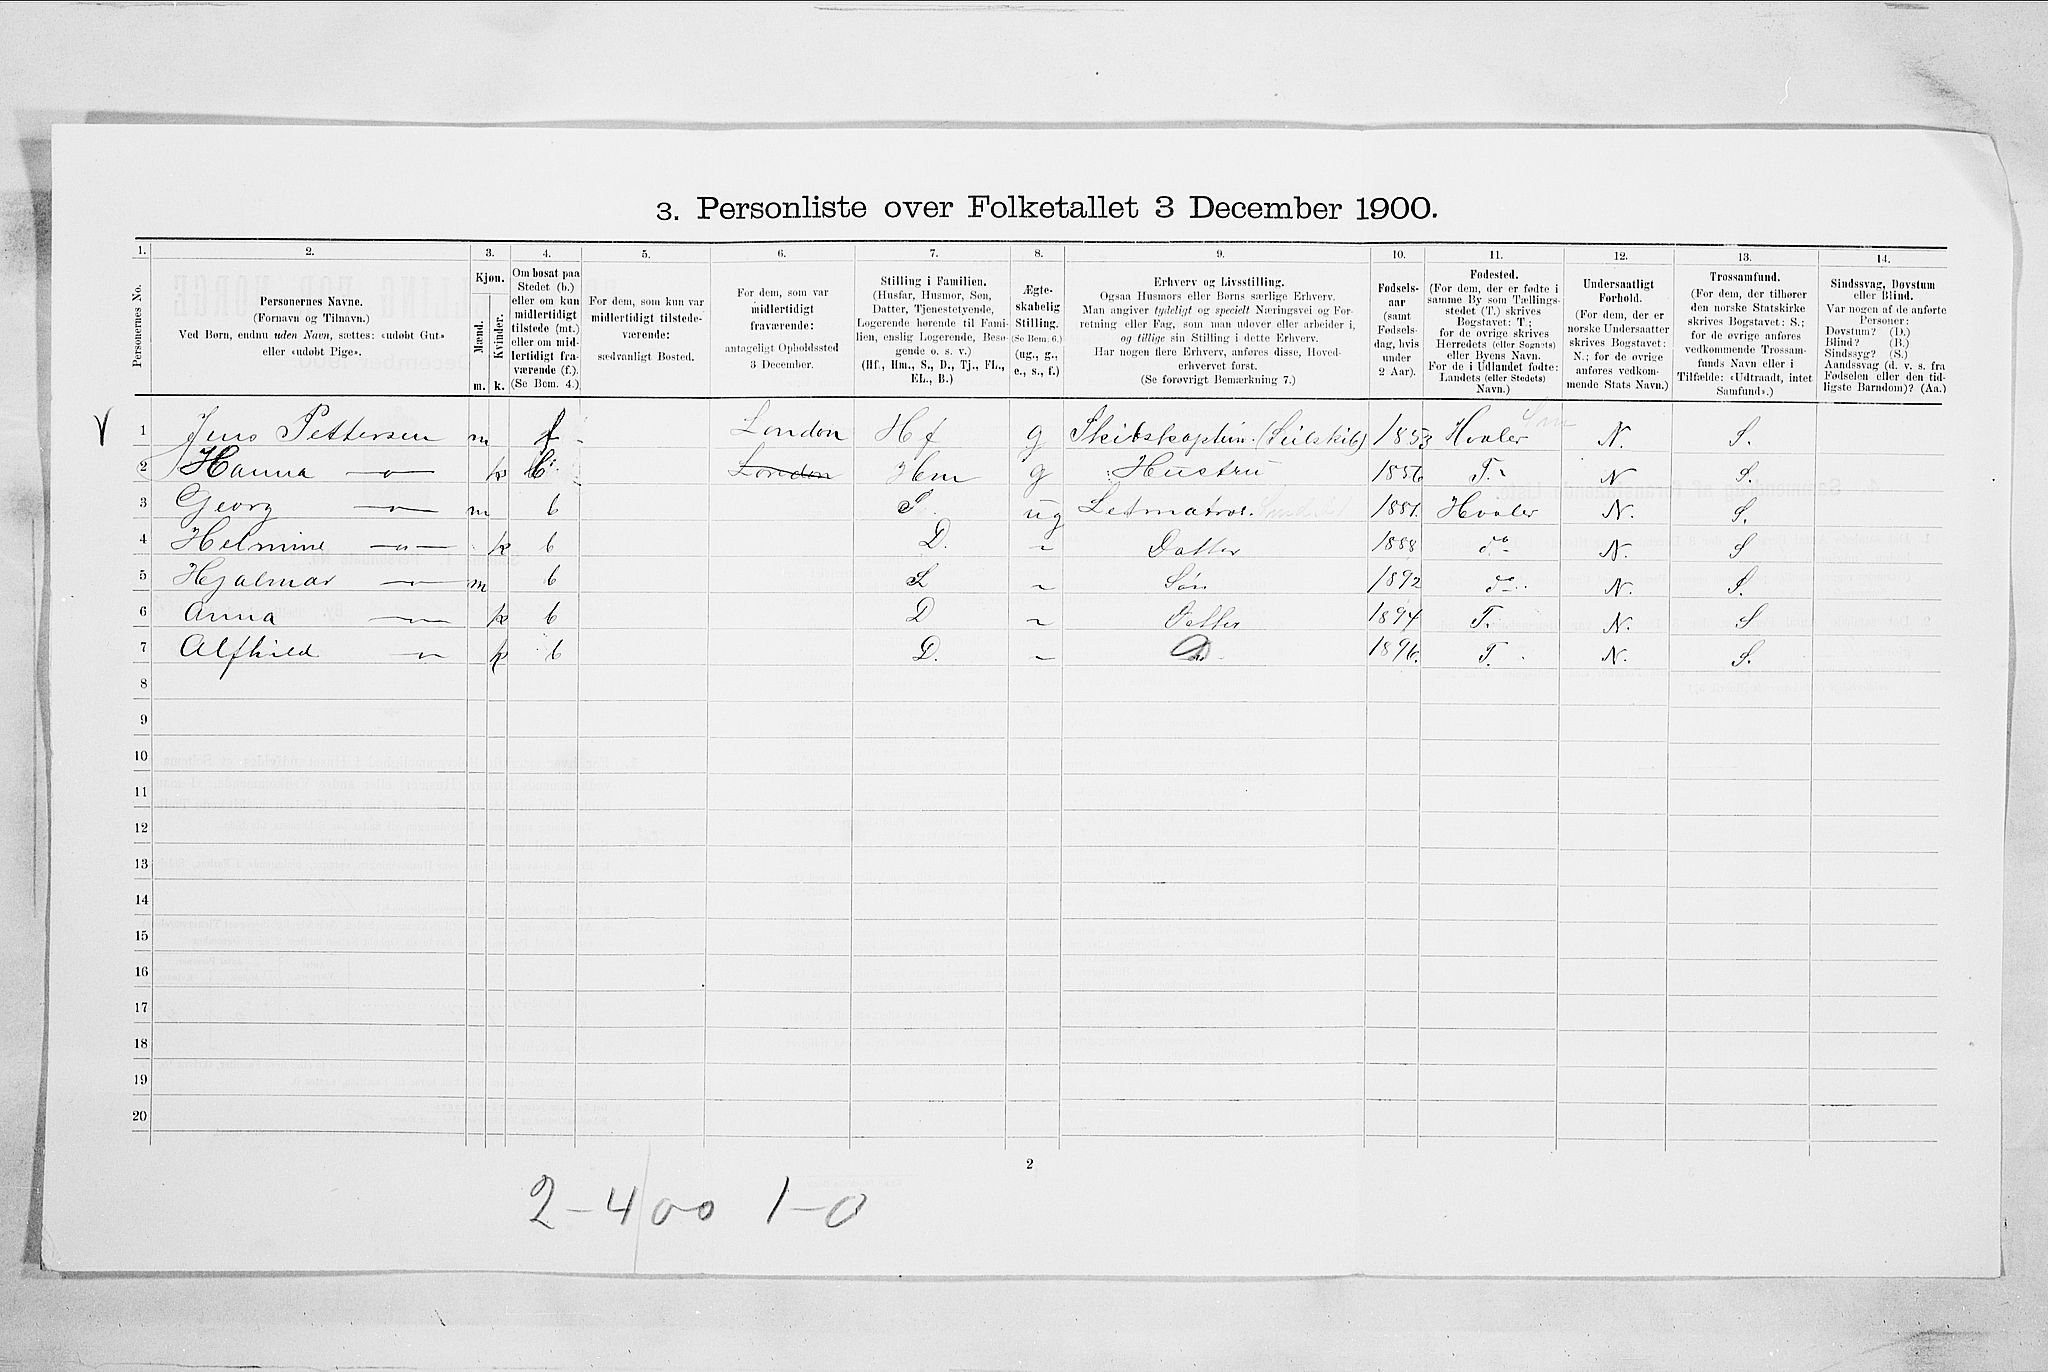 3. Personliste over Folketallet 3 December 1900.
1. 2. 3. 4. 5. 6. 7. 8. 9. 10. 11. 12. 13. 14.
Personernes No.
Personernes Navne.
(Fornavn og Tilnavn.)
Ved Børn, endnu uden Navn, sættes: «udøbt Gut»
eller «udøbt Pige».
Kjøn.
Mænd.
Kvinder.
m. k.
Om bosat paa
Stedet (b.)
eller om kun
midlertidigt
tilstede (mt.)
eller om mid-
lertidigt fra-
værende (f.).
(Se Bem. 4.)
For dem, som kun var
midlertidigt tilstede-
værende:
sædvanligt Bosted.
For dem, som var
midlertidigt
fraværende:
antageligt Opholdssted
3 December.
Stilling i Familien.
(Husfar, Husmor, Søn,
Datter, Tjenestetyende,
Logerende hørende til Fami-
lien, enslig Logerende, Besø-
gende o. s. v.)
(Hf., Hm., S., D., Tj., FL.,
EL., B.)
Ægte-
skabelig
Stilling.
(Se Bem. 6.)
(ug., g.,
e., s., f.)
Erhverv og Livsstilling.
Ogsaa Husmors eller Børns særlige Erhverv.
Man angiver tydeligt og specielt Næringsvei og For-
retning eller Fag, som man udøver eller arbeider i,
og tillige sin Stilling i dette Erhverv.
Har nogen flere Erhverv, anføres disse, Hoved-
erhvervet først.
(Se forøvrigt Bemærkning 7.)
Fødsels-
aar
(samt
Fødsels-
dag, hvis
under
2 Aar).
Fødested.
(For dem, der er fødte i
samme By som Tællings-
stedet (T.) skrives
Bogstavet: T.;
for de øvrige skrives
Herredets (eller Sognets)
eller Byens Navn.
For de i Udlandet fødte:
Landets (eller Stedets)
Navn.)
Undersaatligt
Forhold.
(For dem, der er
norske Undersaatter
skrives Bogstavet:
N.; for de øvrige
anføres vedkom-
mende Stats Navn.)
Trossamfund.
(For dem, der tilhører
den norske Statskirke
skrives Bogstavet: S.;
for de øvrige anføres
vedkommende Trossam-
funds Navn eller i
Tilfælde: «Udtraadt, intet
Samfund».)
Sindssvag, Døvstum
eller Blind.
Var nogen af de anførte
Personer:
Døvstum? (D.)
Blind? (B.)
Sindssyg? (S.)
Aandssvag (d. v. s. fra
Fødselen eller den tid-
ligste Barndom)? (Aa.)
V 1 Jens Pettersen m f - London Hf g 1853 Hvaler N. S.
2 Hanna —〃— k b London Hm g Hustru 1856 T. N S.
3 Georg —〃— m b S. ug Letmatros. 1881. Hvaler N. S.
4 Helmine —〃— k b D. 〃 Datter 1888 do N. S
5 Hjalmar —〃— m b S 〃 Søn 1892 do N. S.
6 Anna —〃— k b D 〃 Datter 1894 T. N. S
7 Alfhild —〃— k b D. 〃 D 1896. T. N. S.
8
9
10
11
12
13
14
15
16
17
18
19
20
2
2-4/00 1-0